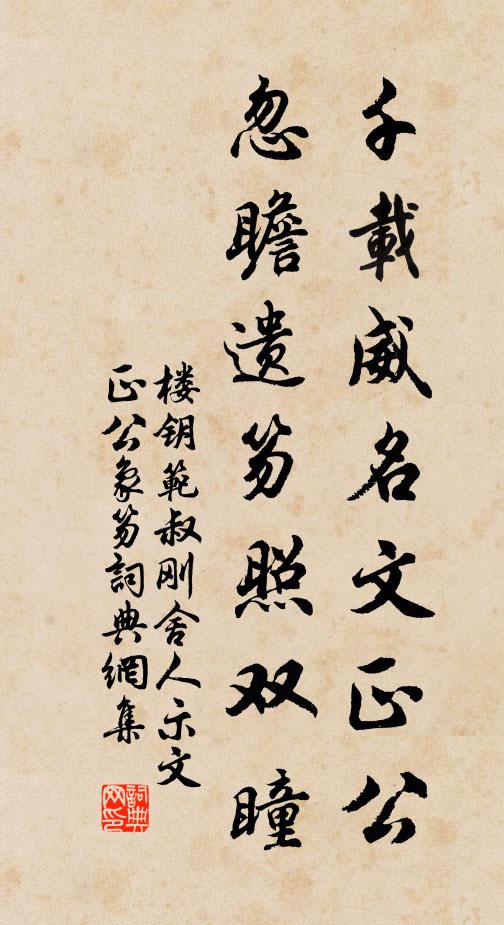 千載威名文正公
忽瞻遗笏照双瞳
楼钥範叔刚舍人示文
正公象笏詞典網集
詞典
网印